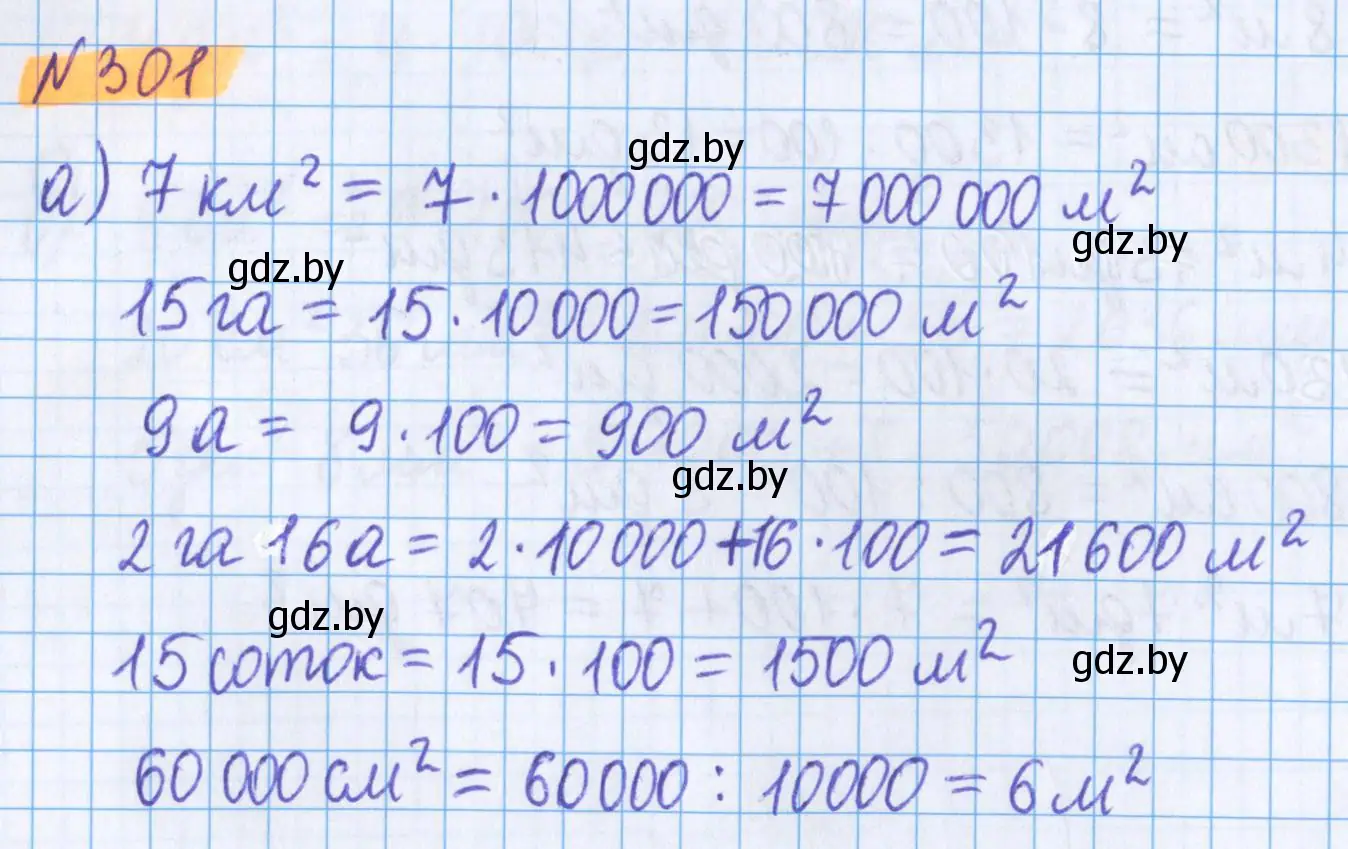 №301
gdz.by
а) 7 км² = 7 · 1000 000 = 7 000 000 м²
gdz.by
gdz.by
15 га = 15 · 10 000 = 150 000 м²
9 а = 9 · 100 = 900 м²
gdz.by
2 га 16 а = 2 · 10 000 + 16 · 100 = 21 600 м²
gdz.by
15 соток = 15 · 100 = 1500 м²
gdz.by
60 000 см² = 60000 : 10000 = 6 м²